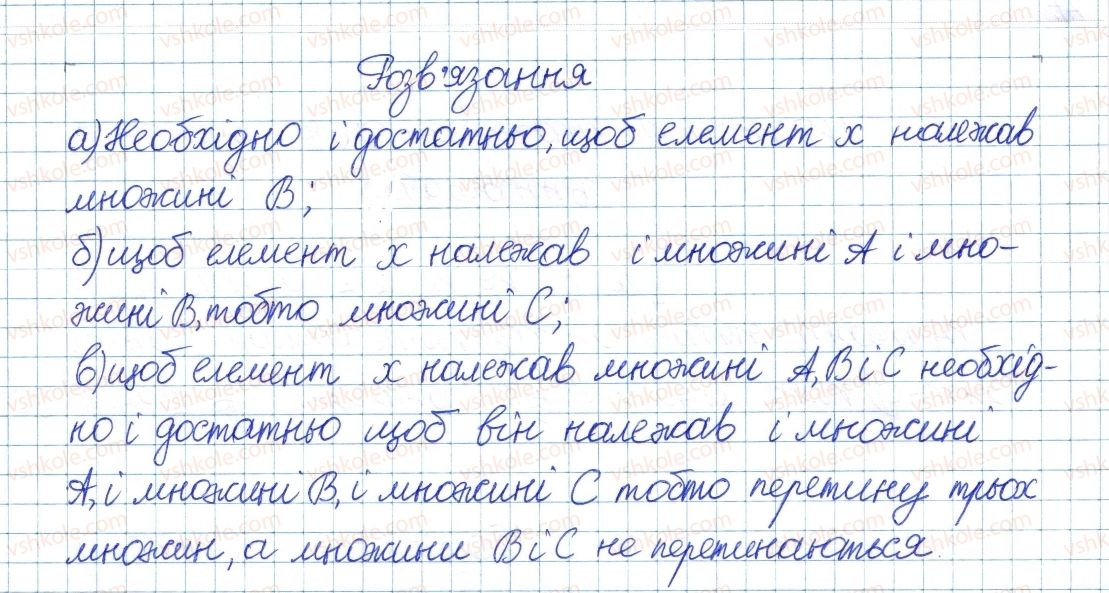 Розв'язання
а) Необхідно і достатньо, щоб елемент x належав
множині B;
б) щоб елемент x належав і множині A і мно-
жині B, тобто множині C;
в) щоб елемент x належав множині A, B і C необхід-
но і достатньо щоб він належав і множині
A, і множині B, і множині C тобто перетину трьох
множин, а множини B і C не перетинаються.